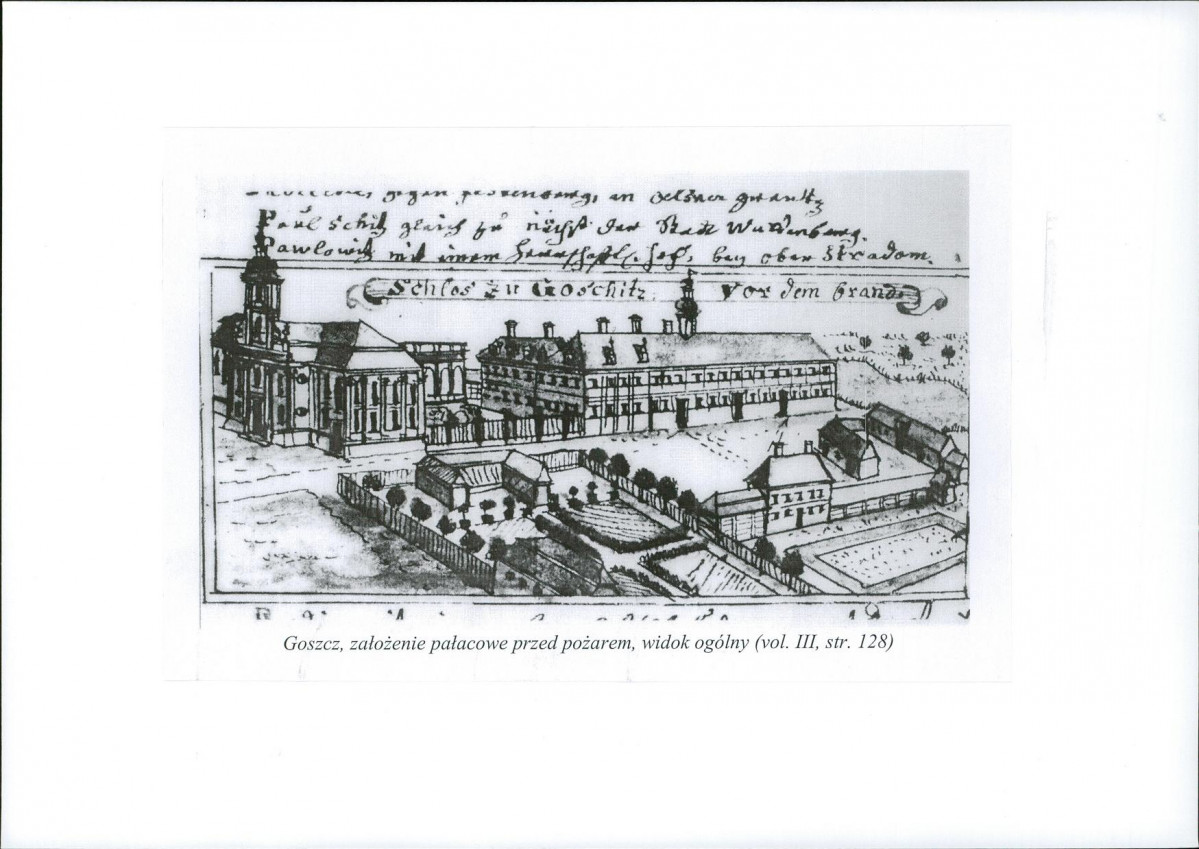 gegen festenberg, in Oelsner
Paul schitz gleich zu nächst der Stadt Wartenberg.
Pawlowitz mit einem herrschaftl. hof, bey ober Stradam.
Schlos zu Goschitz. Vor dem brand
Goszcz, założenie pałacowe przed pożarem, widok ogólny (vol. III, str. 128)